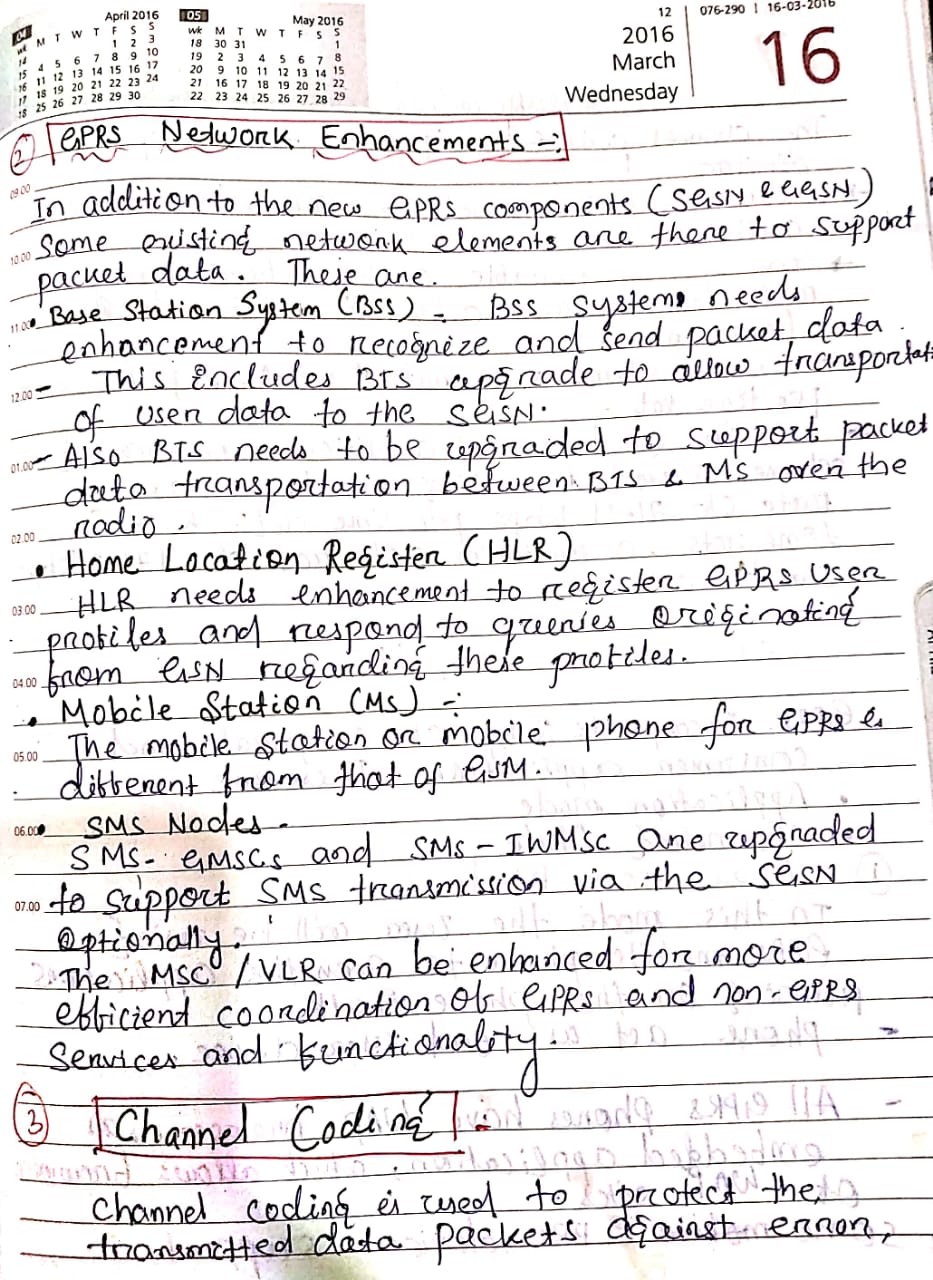 April 2016
M T W T F S S
1 2 3
14 4 5 6 7 8 9 10
15 11 12 13 14 15 16 17
16 18 19 20 21 22 23 24
17 25 26 27 28 29 30
18
05 May 2016
wk M T W T F S S
18 30 31 1
19 2 3 4 5 6 7 8
20 9 10 11 12 13 14 15
21 16 17 18 19 20 21 22
22 23 24 25 26 27 28 29
12
2016
March
Wednesday
076-290 | 16-03-2016
16
② GPRS Network Enhancements :-
09.00
In addition to the new GPRS components (SGSN & GGSN)
10.00 Some existing network elements are there to support
packet data. These are.
11.00 • Base Station System (BSS) - BSS systems needs
enhancement to recognize and send packet data.
12.00 - This includes BTS upgrade to allow transportat
of user data to the SGSN.
01.00 - Also BTS needs to be upgraded to support packet
data transportation between BTS & MS over the
02.00 radio.
• Home Location Register (HLR)
03.00 HLR needs enhancement to register GPRS User
profiles and respond to queries originating
04.00 from GSN regarding these profiles.
• Mobile Station (MS) :-
05.00 The mobile station or mobile phone for GPRS is
different from that of GSM.
06.00 • SMS Nodes -
SMS-GMSCs and SMS-IWMSC are upgraded
07.00 to support SMS transmission via the SGSN
Optionally.
The MSC/VLR can be enhanced for more
efficient coordination of GPRS and non-GPRS
Services and functionality.
③ Channel Coding :-
Channel coding is used to protect the
transmitted data packets against error,